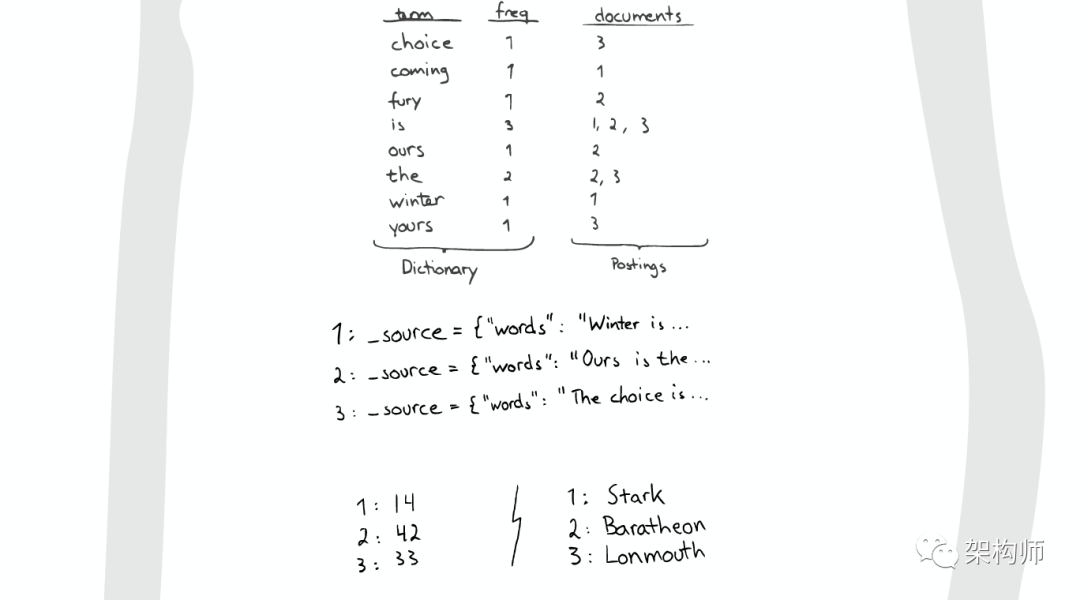 term freq documents
choice 1 3
coming 1 1
fury 1 2
is 3 1, 2, 3
ours 1 2
the 2 2, 3
winter 1 1
yours 1 3
Dictionary Postings
1: _source = {"words": "Winter is ...
2: _source = {"words": "Ours is the ...
3: _source = {"words": "The choice is ...
1: 14 1: Stark
2: 42 2: Baratheon
3: 33 3: Lonmouth
架构师